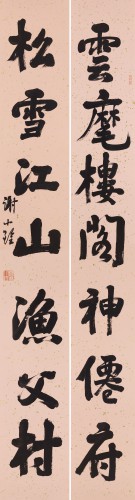 雲麾樓閣神僊府
松雪江山漁父村